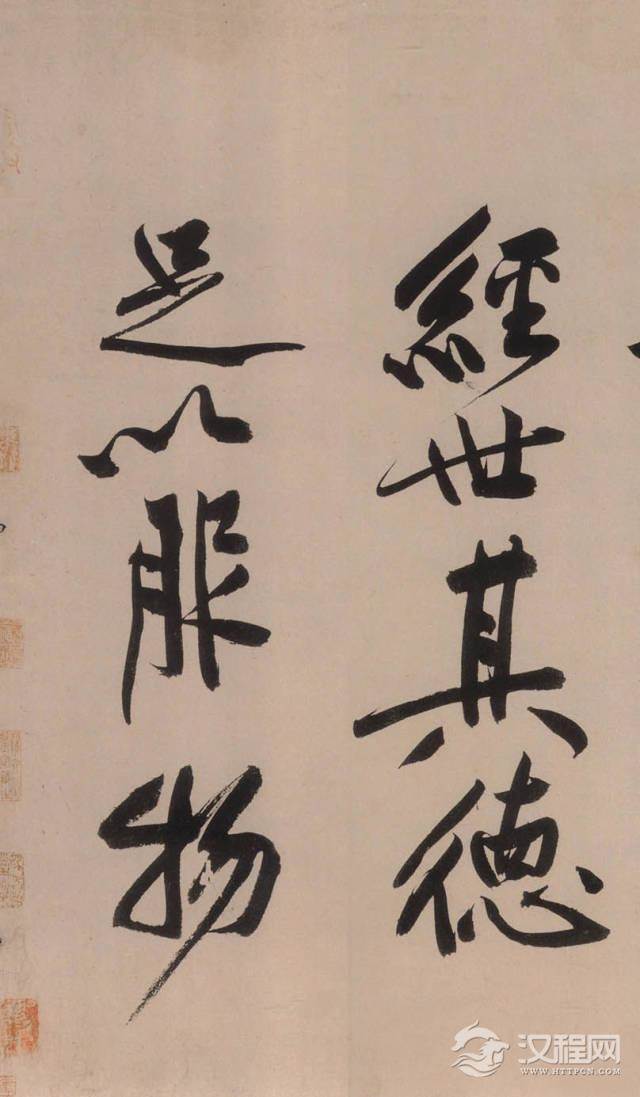 經世其德
足以服物
汉程网
WWW.HTTPCN.COM